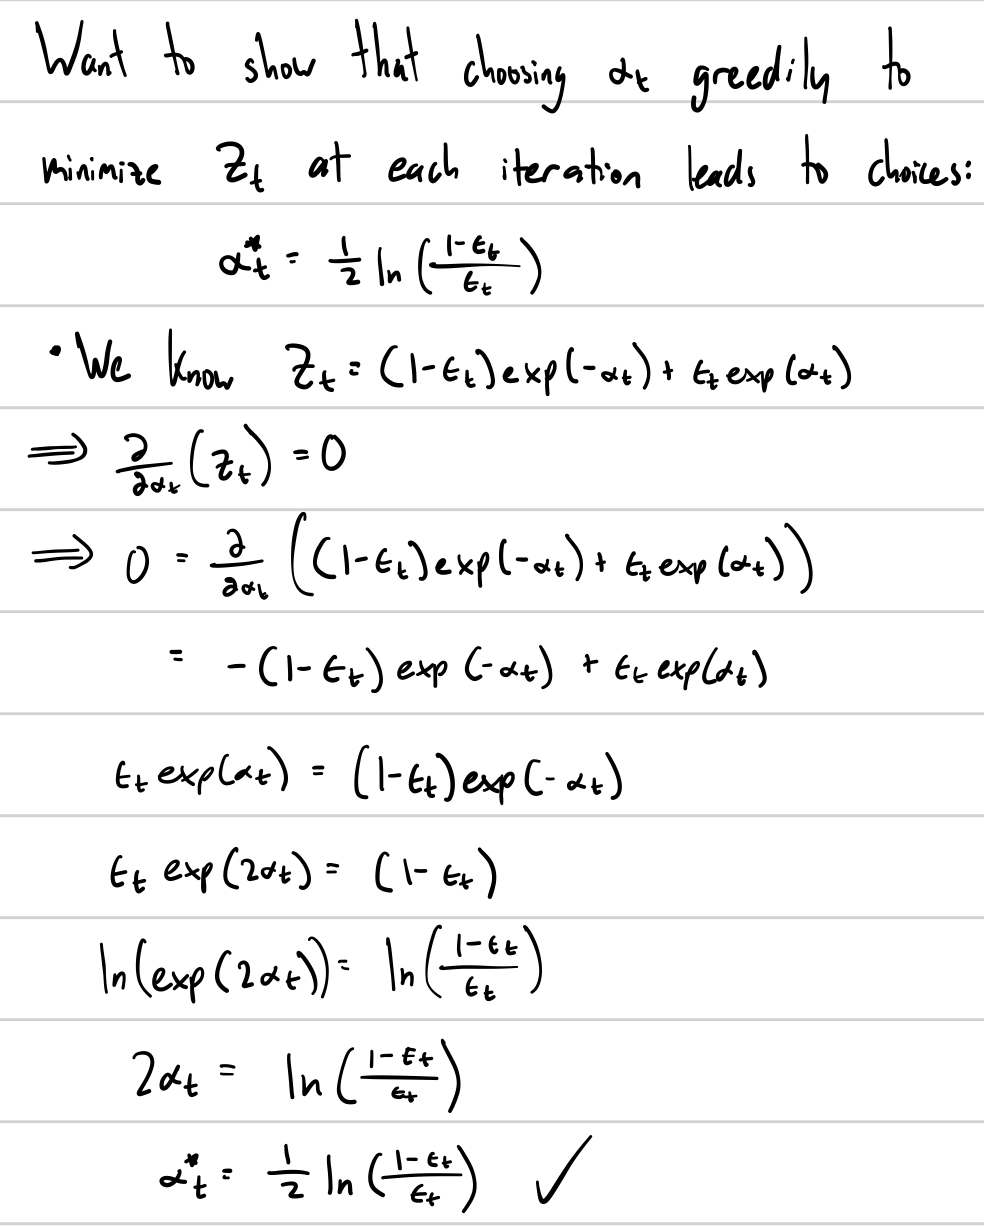 Want to show that choosing αₜ greedily to
minimize Zₜ at each iteration leads to choices:
αₜ* = 1/2 ln((1-ϵₜ)/ϵₜ)
• We know Zₜ = (1-ϵₜ)exp(-αₜ) + ϵₜ exp(αₜ)
⟹ ∂/∂αₜ (Zₜ) = 0
⟹ 0 = ∂/∂αₜ ((1-ϵₜ)exp(-αₜ) + ϵₜ exp(αₜ))
= -(1-ϵₜ) exp(-αₜ) + ϵₜ exp(αₜ)
ϵₜ exp(αₜ) = (1-ϵₜ)exp(-αₜ)
ϵₜ exp(2αₜ) = (1-ϵₜ)
ln(exp(2αₜ)) = ln((1-ϵₜ)/ϵₜ)
2αₜ = ln((1-ϵₜ)/ϵₜ)
αₜ* = 1/2 ln((1-ϵₜ)/ϵₜ) ✓